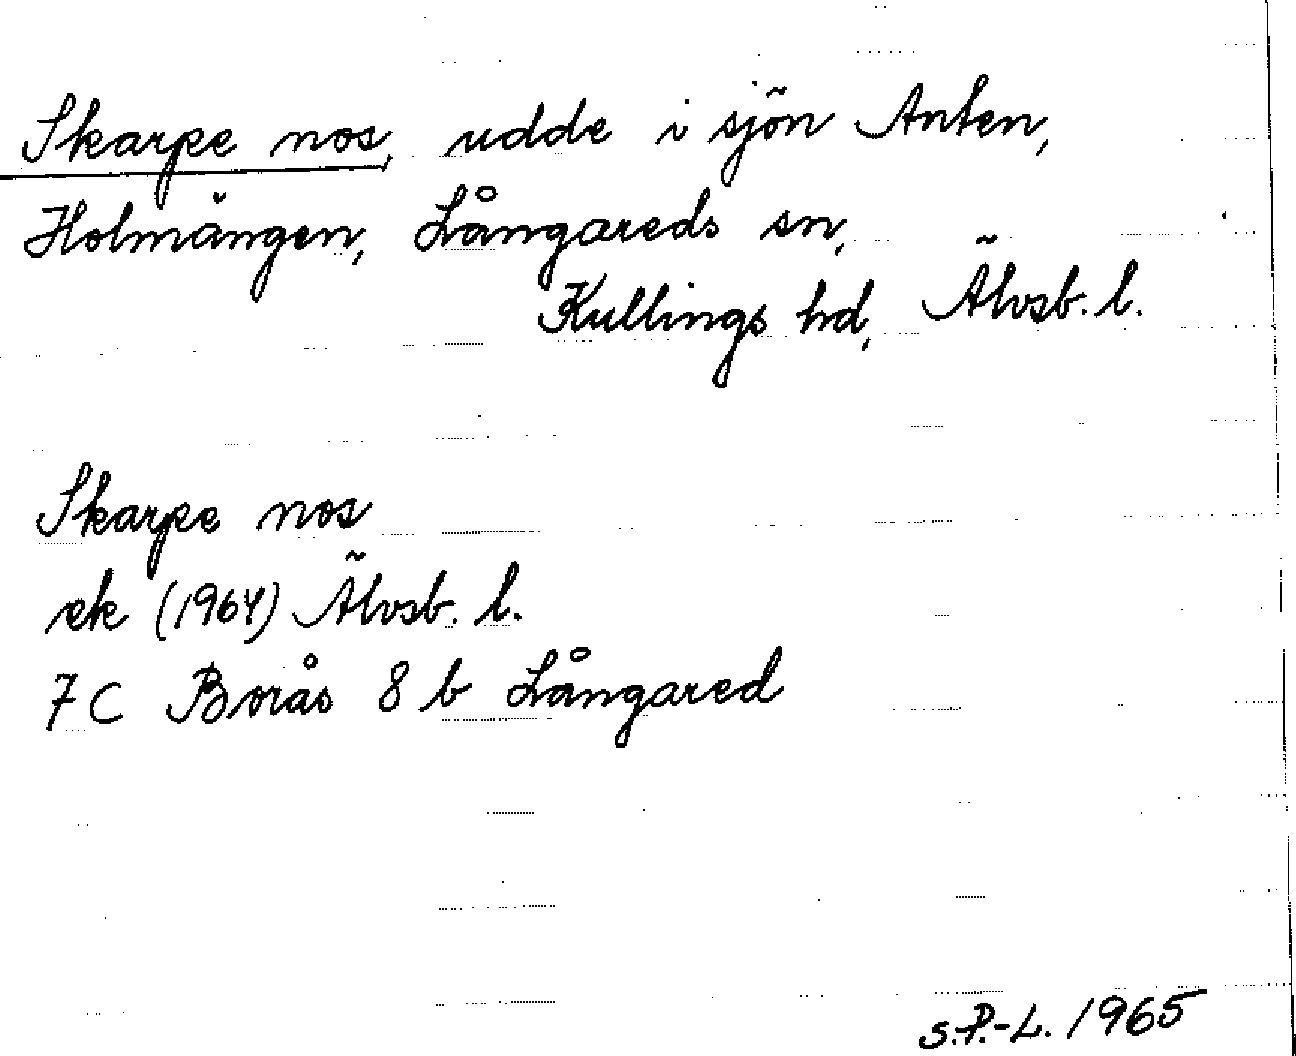 Skarpe nos, udde i sjön Anten,
Holmängen, Långareds sn,
Kullings hd, Älvsb. l.
Skarpe nos
ek (1964) Älvsb. l.
7 C Borås 8 b Långared
S.P.-L. 1965